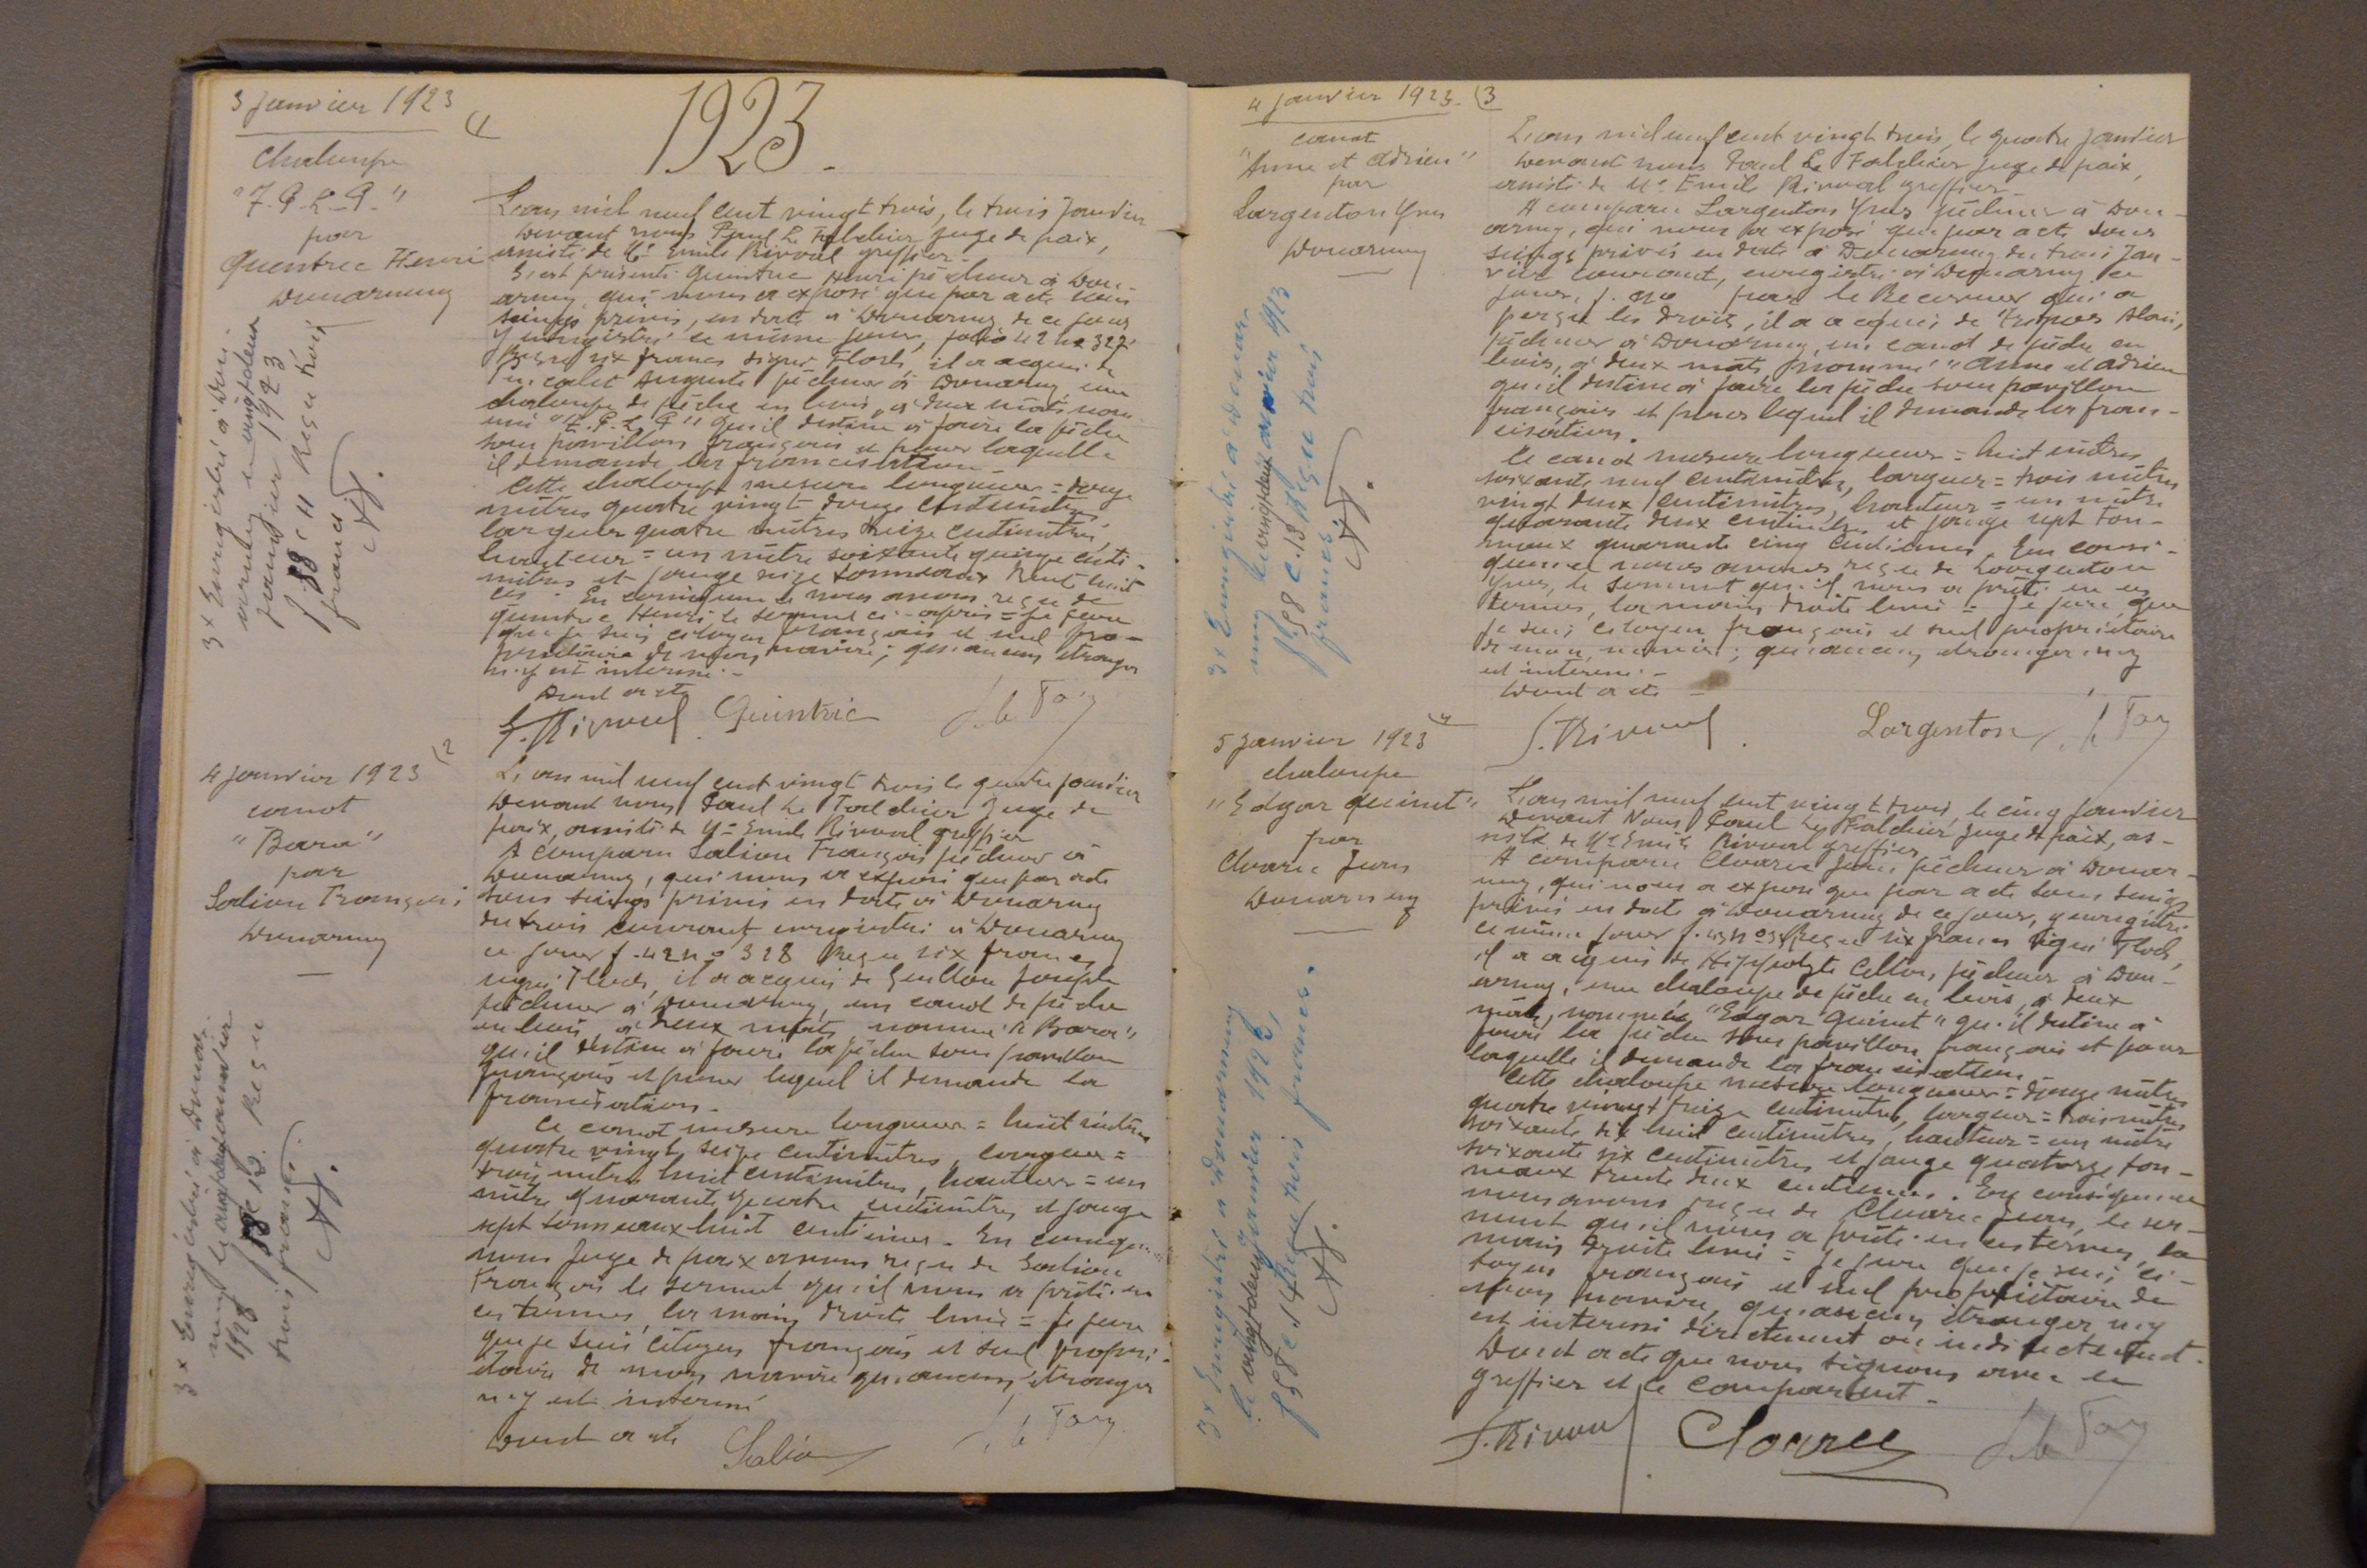 3 Janvier 1923
(1
1923.
chaloupe
par
Quentrec Henri
Douarnenez
L'an mil neuf cent vingt trois, le trois Janvier
devant nous Paul Le Falchier juge de paix,
assisté de Me Emile Rivoal greffier.
S'est présenté Quintric Henri pêcheur à Dou-
arnenez, qui nous a exposé que par acte sous
seings privés, en date à Douarnenez de ce jour
y enregistré ce même jour, folio 42 no 327
Reçu six francs signé Floch, il a acquis de
Auguste pêcheur à Douarnenez, une
chaloupe de pêche en bois, à deux mâts nom-
qu'il destine à faire la pêche
sous pavillon français et pour laquelle
il demande la francisation.
Cette chaloupe mesure longueur = douze
mètres quatre vingt douze centimètres,
largeur quatre mètres treize centimètres,
hauteur = un mètre soixante quinze centi-
mètres et jauge seize tonneaux
En conséquence nous avons reçu de
Quintric Henri le serment ci-après = je jure
que je suis citoyen français et seul pro-
priétaire de mon navire ; qu'aucun étranger
n'y est intéressé.-
Dont acte
E. Rivoal Quintric
3x Enregistré à Dou-
arnenez le vingt deux
janvier 1923
f. 58 c 11 Reçu trois
francs
4 janvier 1923 (2
canot
"Bara"
par
Salion François
Douarnenez
L'an mil neuf cent vingt trois le quatre janvier
Devant nous Paul Le Falchier Juge de
paix, assisté de Me Emile Rivoal greffier
A comparu Salion François pêcheur à
Douarnenez, qui nous a exposé que par acte
sous seings privés en date à Douarnenez
du trois courant, enregistré à Douarnenez
ce jour f. 42 no 328 Reçu six francs
signé Floch, il a acquis de Guillou Joseph
pêcheur à Douarnenez, un canot de pêche
en bois, à deux mâts nommé "Bara"
qu'il destine à faire la pêche sous pavillon
français et pour lequel il demande la
francisation.
Ce canot mesure longueur = huit mètres
quatre vingt seize centimètres, largeur =
trois mètres huit centimètres, hauteur = un
mètre quarante quatre centimètres et jauge
sept tonneaux huit centièmes. En conséquence
nous Juge de paix avons reçu de Salion
François le serment qu'il nous a prêté en
ces termes, la main droite levée = je jure
que je suis citoyen français et seul propri-
étaire de mon navire qu'aucun étranger
n'y est intéressé
Dont acte
Salion
3x Enregistré à Douar-
nenez le vingt deux janvier
1923 f 58 c 12 Reçu
trois francs.
4 janvier 1923. (3
canot
"Anne et Adrien"
par
Largenton Yves
Douarnenez
L'an mil neuf cent vingt trois, le quatre janvier
devant nous Paul Le Falchier juge de paix,
assisté de Me Emile Rivoal greffier.
A comparu Largenton Yves pêcheur à Dou-
arnenez, qui nous a exposé que par acte sous
seings privés en date à Douarnenez du trois Jan-
vier courant, enregistré à Douarnenez ce
jour, f. par le Receveur qui a
perçu les droits, il a acquis de Alain,
pêcheur à Douarnenez, un canot de pêche en
bois, à deux mâts, nommé "Anne et Adrien
qu'il destine à faire la pêche sous pavillon
français et pour lequel il demande la fran-
cisation.
Ce canot mesure longueur = huit mètres
soixante neuf centimètres, largeur = trois mètres
vingt deux centimètres, hauteur = un mètre
quarante deux centimètres et jauge sept ton-
neaux quarante cinq centièmes. En consé-
quence nous avons reçu de Largenton
Yves, le serment qu'il nous a prêté en ces
termes, la main droite levée = je jure que
je suis citoyen français et seul propriétaire
de mon navire ; qu'aucun étranger n'y
est intéressé.-
Dont acte -
E. Rivoal Largenton
3x Enregistré à Douar-
nenez le vingt deux janvier 1923
f. 58 c. 13 Reçu trois
francs
5 Janvier 1923 (4
chaloupe
"Edgar Quinet"
par
Cloarec Jean
Douarnenez
L'an mil neuf cent vingt trois, le cinq Janvier
Devant Nous Paul Le Falchier juge de paix, as-
sisté de Me Emile Rivoal greffier
A comparu Cloarec Jean, pêcheur à Douar-
nenez, qui nous a exposé que par acte sous seings
privés en date à Douarnenez de ce jour, y enregistré
ce même jour reçu six francs signé Floch,
il a acquis de Hippolyte Celton, pêcheur à Dou-
arnenez, une chaloupe de pêche en bois, à deux
mâts, nommée "Edgar Quinet" qu'il destine à
faire la pêche sous pavillon français et pour
laquelle il demande la francisation.
Cette chaloupe mesure longueur = douze mètres
quatre vingt treize centimètres, largeur = trois mètres
soixante dix huit centimètres, hauteur = un mètre
soixante six centimètres et jauge quatorze ton-
neaux trente deux centièmes. En conséquence
nous avons reçu de Cloarec Jean, le ser-
ment qu'il nous a prêté en ces termes, la
main droite levée = je jure que je suis ci-
toyen français et seul propriétaire de
mon navire, qu'aucun étranger n'y
est intéressé directement ou indirectement.
Dont acte que nous signons avec le
greffier et le comparant.-
E. Rivoal Cloarec
3x Enregistré à Douarnenez
le vingt deux janvier 1923,
f 58 c 14 Reçu trois francs.